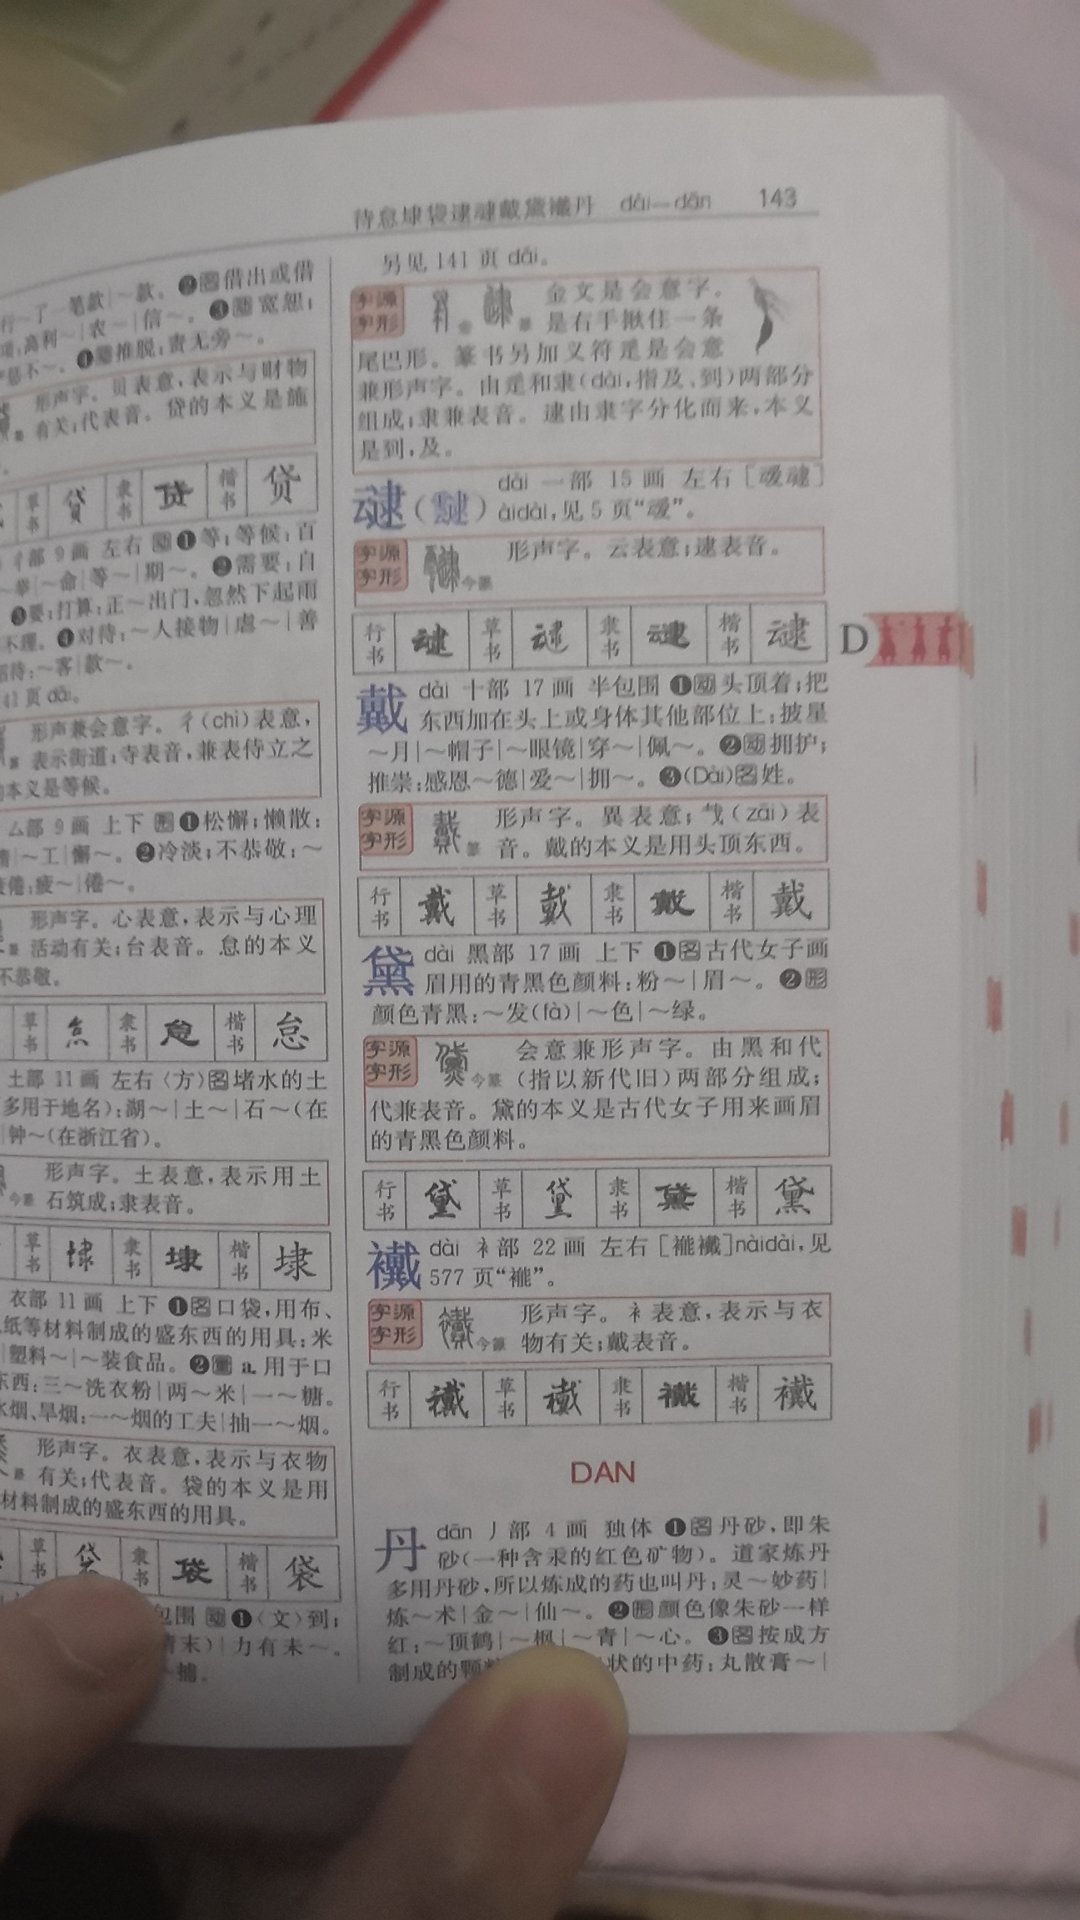 待怠埭袋逮靆戴黛襶丹 dài—dān 143
行～了一笔款|～款。❷名借出或借
项;高利～|农～|信～。❸动宽恕;
❹动推脱;责无旁～。
形声字。贝表意,表示与财物
有关;代表音。贷的本义是施
草书 贷 隶书 贷 楷书 贷
彳部 9画 左右 动❶等;等候:百
～举|～命|等～|期～。❷需要:自
❸要;打算:正～出门,忽然下起雨
不理。❹对待:～人接物|虐～|善
招待:～客|款～。
41页dāi。
形声兼会意字。彳(chì)表意,
表示街道;寺表音,兼表侍立之
的本义是等候。
厶部 9画 上下 形❶松懈;懒散:
惰|～工|懈～。❷冷淡;不恭敬:～
倦;疲～|倦～。
形声字。心表意,表示与心理
活动有关;台表音。怠的本义
不恭敬。
草书 怠 隶书 怠 楷书 怠
土部 11画 左右〈方〉名堵水的土
多用于地名):湖～|土～|石～(在
|钟～(在浙江省)。
形声字。土表意,表示用土
今篆 石筑成;隶表音。
草书 埭 隶书 埭 楷书 埭
衣部 11画 上下 ❶名口袋,用布、
纸等材料制成的盛东西的用具:米
|塑料～|～装食品。❷量 a.用于口
东西:三～洗衣粉|两～米|一～糖。
水烟、旱烟:一～烟的工夫|抽一～烟。
形声字。衣表意,表示与衣物
篆 有关;代表音。袋的本义是用
材料制成的盛东西的用具。
草书 袋 隶书 袋 楷书 袋
包围 动❶〈文〉到;
清末)|力有未～。
～捕。
另见141页dǎi。
字源字形 金 篆 金文是会意字。
是右手揪住一条
尾巴形。篆书另加义符辵是会意
兼形声字。由辵和隶(dài,指及、到)两部分
组成;隶兼表音。逮由隶字分化而来,本义
是到,及。
叇(靆) dài 一部 15画 左右 [叆叇]
àidài,见5页“叆”。
字源字形 今篆 形声字。云表意;逮表音。
行书 叇 草书 叇 隶书 叇 楷书 叇
D
戴 dài 十部 17画 半包围 ❶动头顶着;把
东西加在头上或身体其他部位上:披星
～月|～帽子|～眼镜|穿～|佩～。❷动拥护;
推崇:感恩～德|爱～|拥～。❸(Dài)名姓。
字源字形 篆 形声字。異表意;𢦏(zāi)表
音。戴的本义是用头顶东西。
行书 戴 草书 戴 隶书 戴 楷书 戴
黛 dài 黑部 17画 上下 ❶名古代女子画
眉用的青黑色颜料:粉～|眉～。❷形
颜色青黑:～发(fà)|～色|～绿。
字源字形 今篆 会意兼形声字。由黑和代
(指以新代旧)两部分组成;
代兼表音。黛的本义是古代女子用来画眉
的青黑色颜料。
行书 黛 草书 黛 隶书 黛 楷书 黛
襶 dài 衤部 22画 左右 [褦襶]nàidài,见
577页“褦”。
字源字形 今篆 形声字。衤表意,表示与衣
物有关;戴表音。
行书 襶 草书 襶 隶书 襶 楷书 襶
DAN
丹 dān 丿部 4画 独体 ❶名丹砂,即朱
砂(一种含汞的红色矿物)。道家炼丹
多用丹砂,所以炼成的药也叫丹:灵～妙药|
炼～术|金～|仙～。❷形颜色像朱砂一样
红:～顶鹤|～枫|～青|～心。❸名按成方
制成的颗粒 状的中药:丸散膏～|